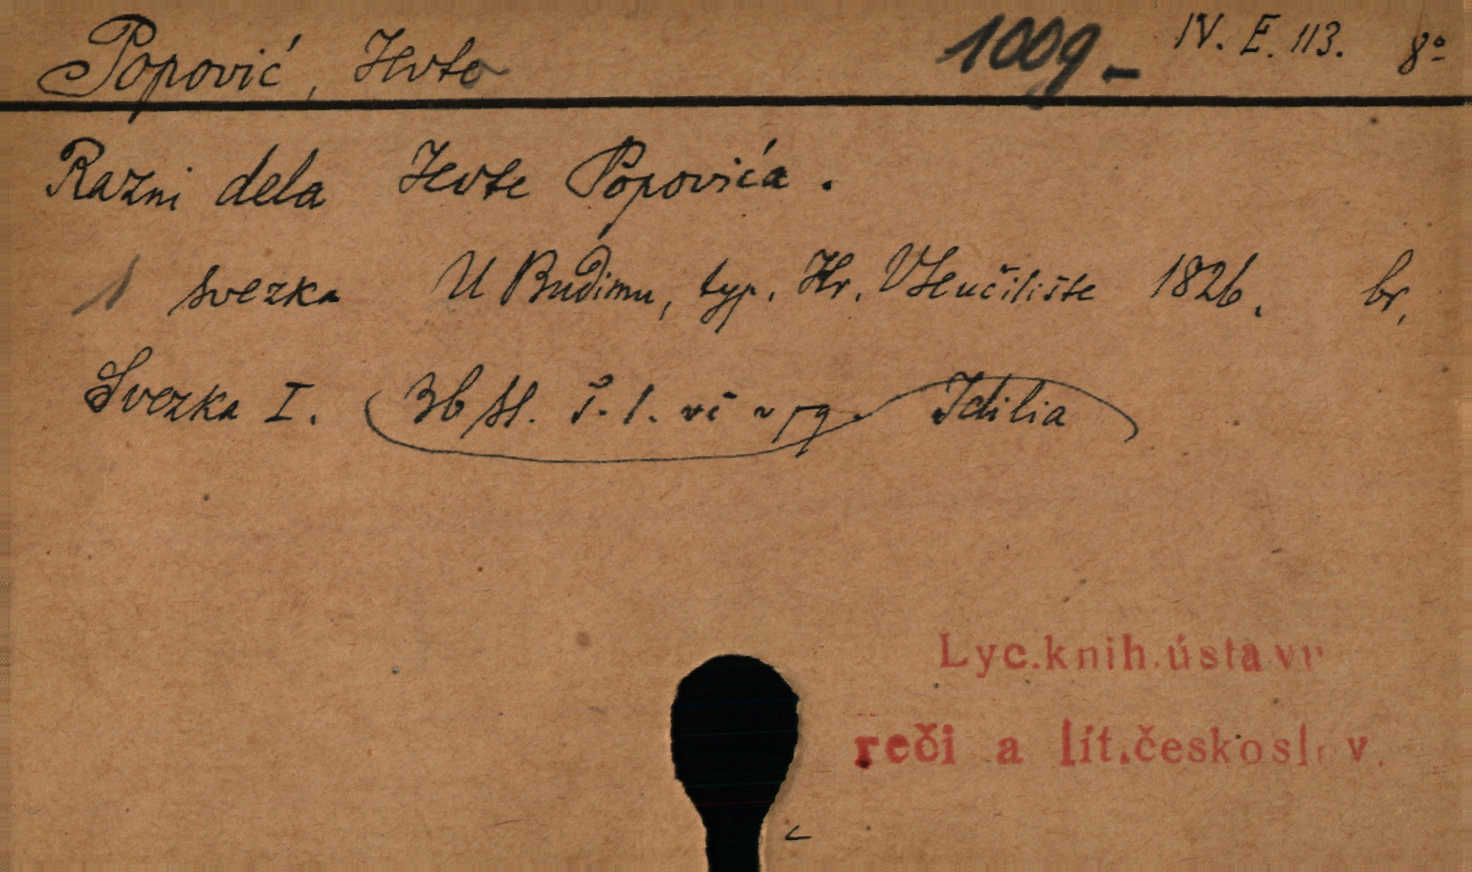 Popović, Jevto 1009 - IV. E. 113. 8º
Razni dela Jevte Popovića.
1 svezka U Budimu, typ. Kr. Vseučilište 1826. br.
Svezka I. (36 st. Idilia
Lyc.knih.ústavu
reči a lit.českoslov.